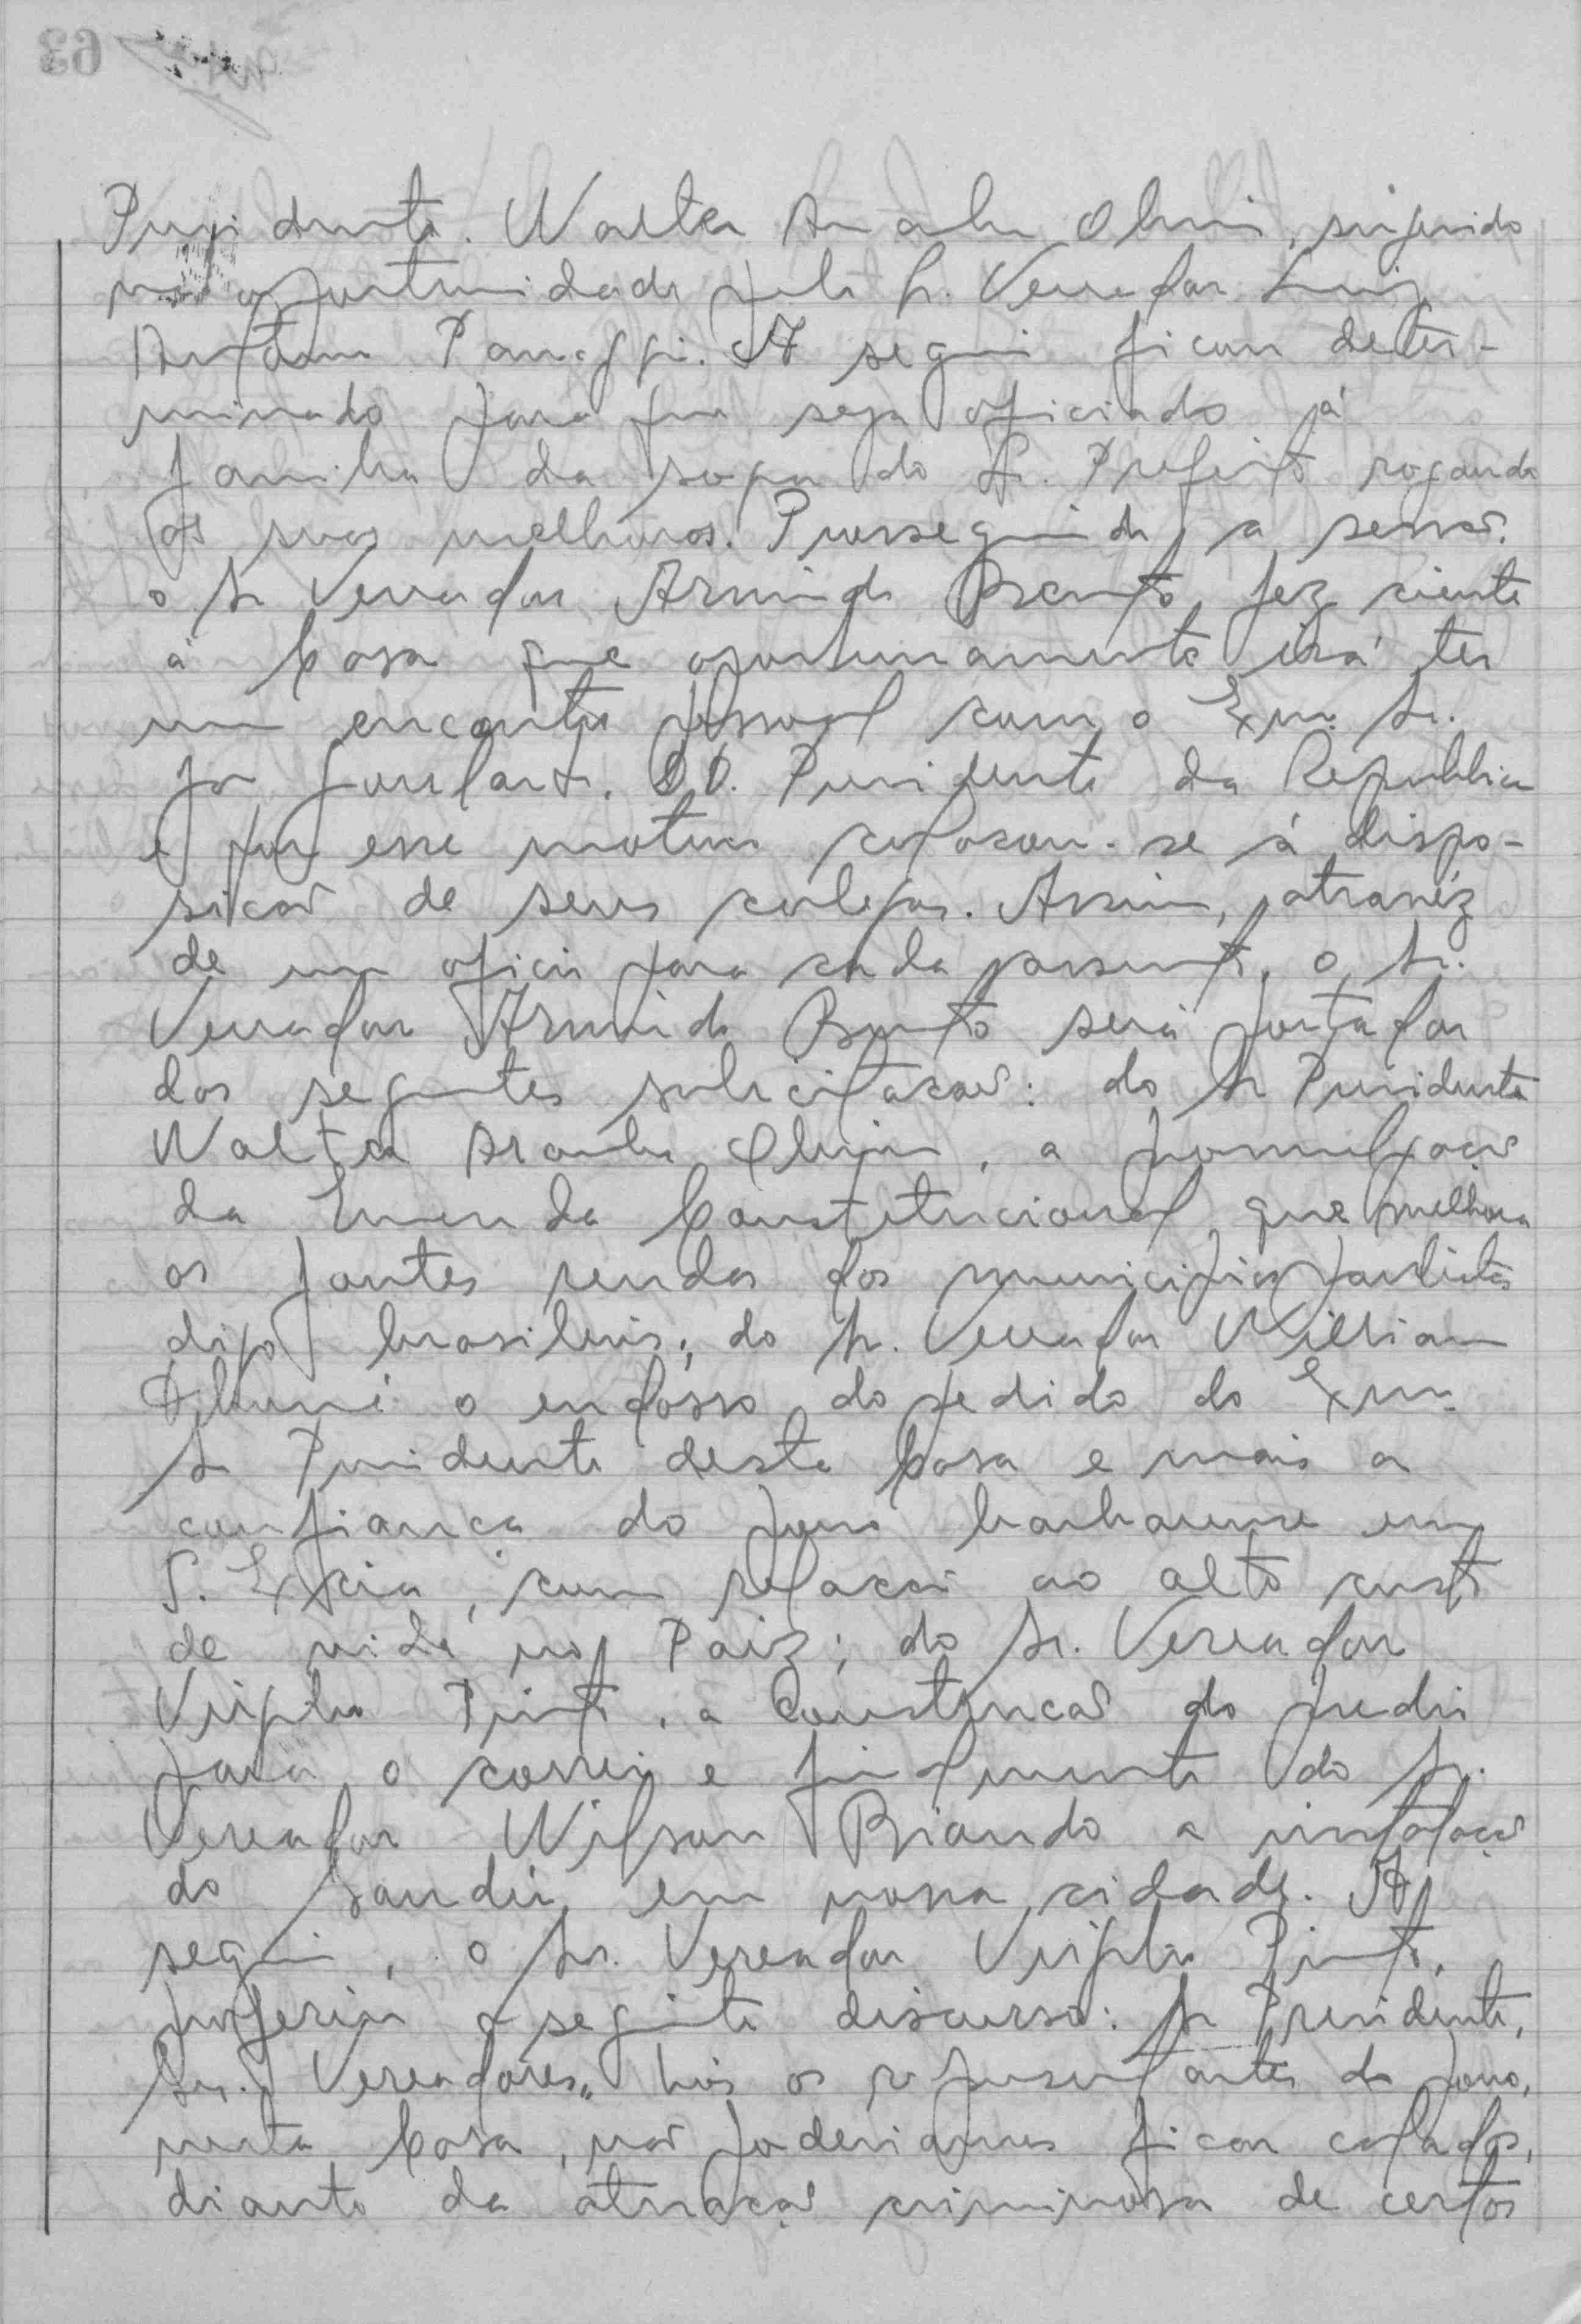 Presidente. Walter Arauho Olivi, sugerido
na oportunidade pelo Sr. Vereador Luiz
Antonio Panaggi. A seguir ficou deter-
minado para que seja oficiado á
familia da sogra do Sr. Prefeito rogando
as suas melhoras. Prosseguindo, a sessão.
o Sr Vereador Armindo fez ciente
á Casa que oportunamente irá ter
um encontro pessoal com o Exmo. Sr.
Goulart. DD. Presidente da Republica
e por esse motivo colocou-se á dispo-
sicão de seus colegas. Assim, atravéz
de um oficio para cada assunto, o Sr.
Vereador Armindo será portador
das seguintes solicitacões: do Sr Presidente
Walter, a promulgacão
da Emenda Constitucional que melhora
as fontes rendas dos municipios paulistas
digo brasileiros; do Sr. Vereador William
o endosso do pedido do Exmo.
Sr Presidente desta Casa e mais a
confianca do povo barbarense em
S. Excia, com relacão ao alto custo
de vida no Paiz; do Sr. Vereador
Virgilio Pinto, a Construcão do predio
para o correio e finalmente do Sr.
Vereador Wilson a instalacão
do Sandú em nossa cidade. A
seguir, o Sr. Vereador Virgilio Pinto,
proferiu o seguinte discurso: Sr Presidente,
Srs. Vereadores,, Nós os representantes do povo,
nesta Casa, não poderiamos ficar calados,
diante da atuacão criminosa de certos